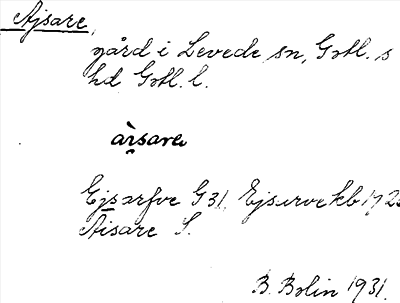 Ajsare,
gård i Levede sn, Gotl. s
hd Gotl. l.
àrsarə
Ejsarfve G31, Ejsarvekb 172
Aisare S.
B. Bolin 1931.